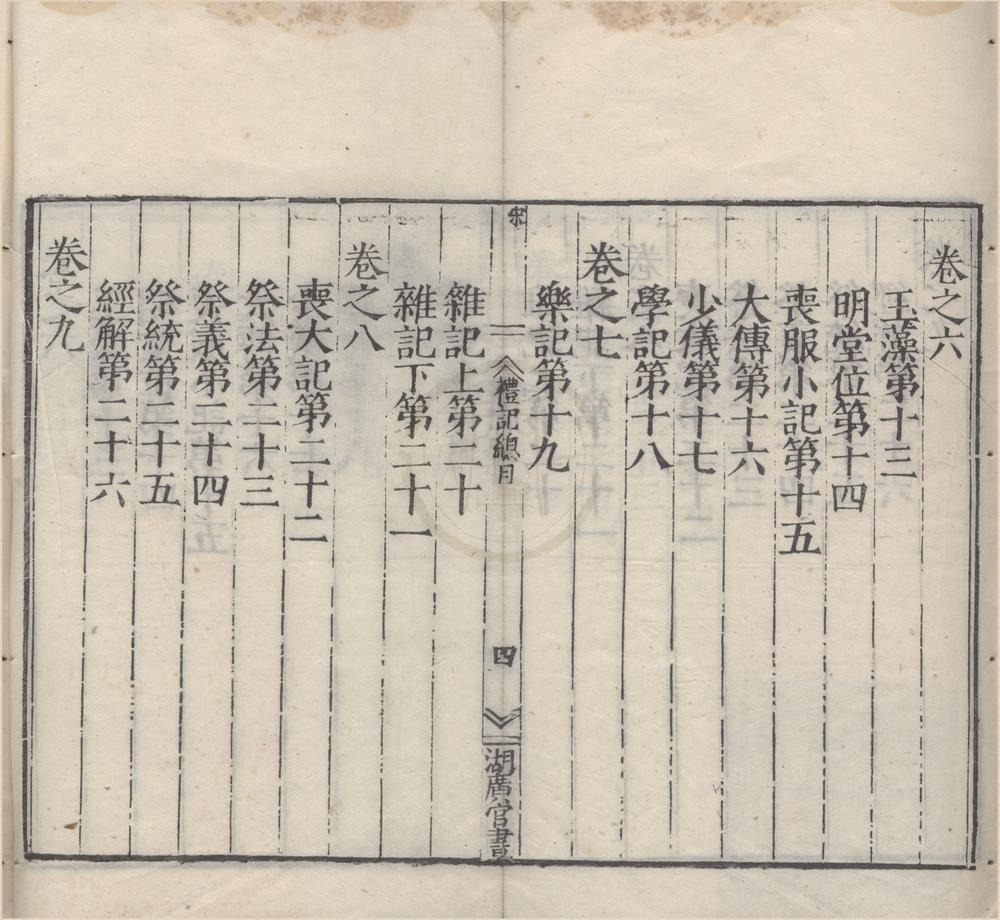 卷之六
玉藻第十三
明堂位第十四
喪服小記第十五
大傳第十六
少儀第十七
學記第十八
卷之七
樂記第十九
禮記總目
四
湖廣官書
雜記上第二十
雜記下第二十一
卷之八
喪大記第二十二
祭法第二十三
祭義第二十四
祭統第二十五
經解第二十六
卷之九